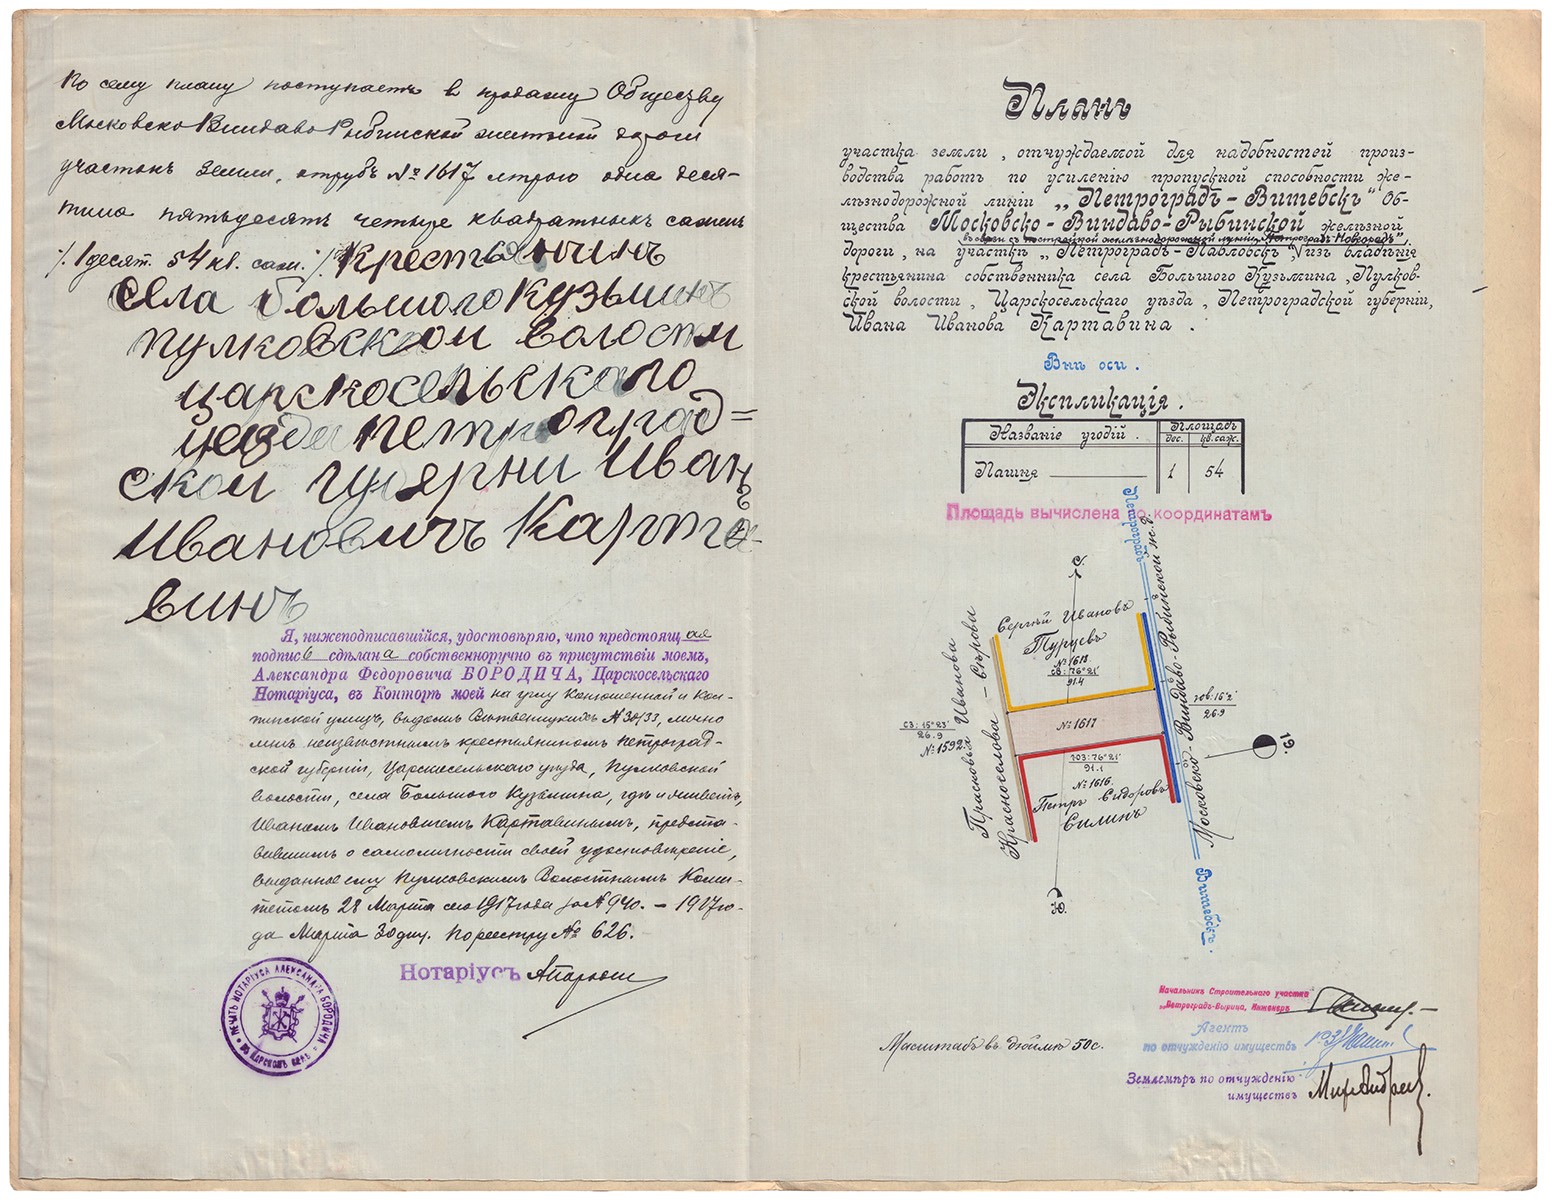 По сему плану поступаетъ в продажу Обществу
Московско Виндаво Рыбинской желѣзной дороги
участокъ земли, отрубъ № 1617 мѣрою одна деся-
тина пятьдесятъ четыре квадратныхъ сажень
/. 1 десят. 54 кв. саж. ./ Крестьянинъ
села большого Кузьминъ
пулковской волости
царскосельского
уезда петроград=
ской губярни Иванъ
Ивановичъ Карта-
винъ
Я, нижеподписавшійся, удостовѣряю, что предстоящая
подпись сдѣлана собственноручно въ присутствіи моемъ,
Александра Фёдоровича БОРОДИЧА, Царскосельскаго
Нотаріуса, въ Конторѣ моей на углу Конюшенной и Кол-
пинской улицъ, в домѣ № 30/33, лично
мнѣ неизвѣстнымъ крестьяниномъ Петроград-
ской губерніи, Царскосельскаго уѣзда, Пулковской
волости, села Большого Кузьмина, гдѣ и живетъ,
Иваномъ Ивановичемъ Картавинымъ, предста-
вившимъ о самоличности своей удостовѣреніе,
выданное ему Пулковскимъ Волостнымъ Коми-
тетомъ 28 Марта сего 1917 года за № 940. – 1917 го-
да Марта 30 дня. По реестру № 626.
Нотаріусъ
ПЕЧАТЬ НОТАРІУСА АЛЕКСАНДРА БОРОДИЧА
ВЪ ЦАРСКОМЪ СЕЛѢ
Планъ
участка земли, отчуждаемой для надобностей произ-
водства работъ по усиленію пропускной способности же-
лѣзнодорожной линіи „Петроградъ-Витебскъ" Об-
щества Московско-Виндаво-Рыбинской желѣзной
въ связи съ постройкой желѣзнодорожной линіи „Петроградъ-Новгородъ",
дороги, на участкѣ „Петроградъ-Павловскъ", изъ владѣнія
крестьянина собственника села Большого Кузьмина, Пулков-
ской волости, Царскосельскаго уѣзда, Петроградской губерніи,
Ивана Иванова Картавина.
Внѣ оси.
Экспликація.
Названіе угодій. Площадь
дес. кв. саж.
Пашня 1 54
Площадь вычислена по координатамъ
Петроградъ
С.
Сергѣй Ивановъ
Туруевъ
№ 1618
СВ: 76°21'
91.4
Прасковья Иванова
Красноселова - Сѣрова
Московско-Виндаво-Рыбинской ж. д.
СЗ: 15°23'
26.9
№ 1592.
№ 1617
ЮВ: 15°2'
26.9
19.
ЮЗ: 76°21'
91.1
№ 1616
Петръ Сидоровъ
Силинъ
Ю.
Витебскъ.
Масштабъ в дюймѣ 50 с.
Начальникъ Строительнаго участка
„Петроградъ-Вырица, Инженеръ
Агентъ
по отчужденію имуществъ
Землемѣръ по отчужденію
имуществъ